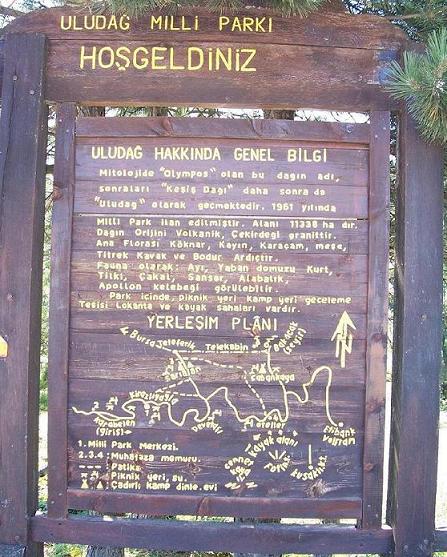 ULUDAĞ MİLLİ PARKI
HOŞGELDİNİZ
ULUDAĞ HAKKINDA GENEL BİLGİ
Mitolojide "Olympos" olan bu dağın adı,
sonraları "Keşiş Dağı" daha sonra da
"Uludağ" olarak geçmektedir. 1961 yılında
Milli Park ilan edilmiştir. Alanı 11338 ha dır.
Dağın Orijini Volkanik, Çekirdegi granittir.
Ana Florası Köknar, Kayın, Karaçam, meşe,
Titrek Kavak ve Bodur Ardıçtır.
Fauna olarak: Ayı, Yaban domuzu Kurt,
Tilki, Çakal, Sansar, Alabalık,
Apollon kelebeği görülebilir.
Park içinde, piknik yeri kamp yeri geceleme
Tesisi Lokanta ve kayak sahaları vardır.
YERLEŞİM PLÂNI
Bursa
Teleferik
Telekabin
Bakacak
(seyir)
Sarıalan
Çobankaya
Kirazlıyayla
Karabelen
(giriş)
Devetaşı
Oteller
Kayak alanı
Etibank
volfram
Zirve
Kuşaklıkaya
1. Milli Park Merkezi.
2.3.4 : Muhafaza memuru.
Patika
Piknik yeri, su.
Çadırlı kamp dinle. evi